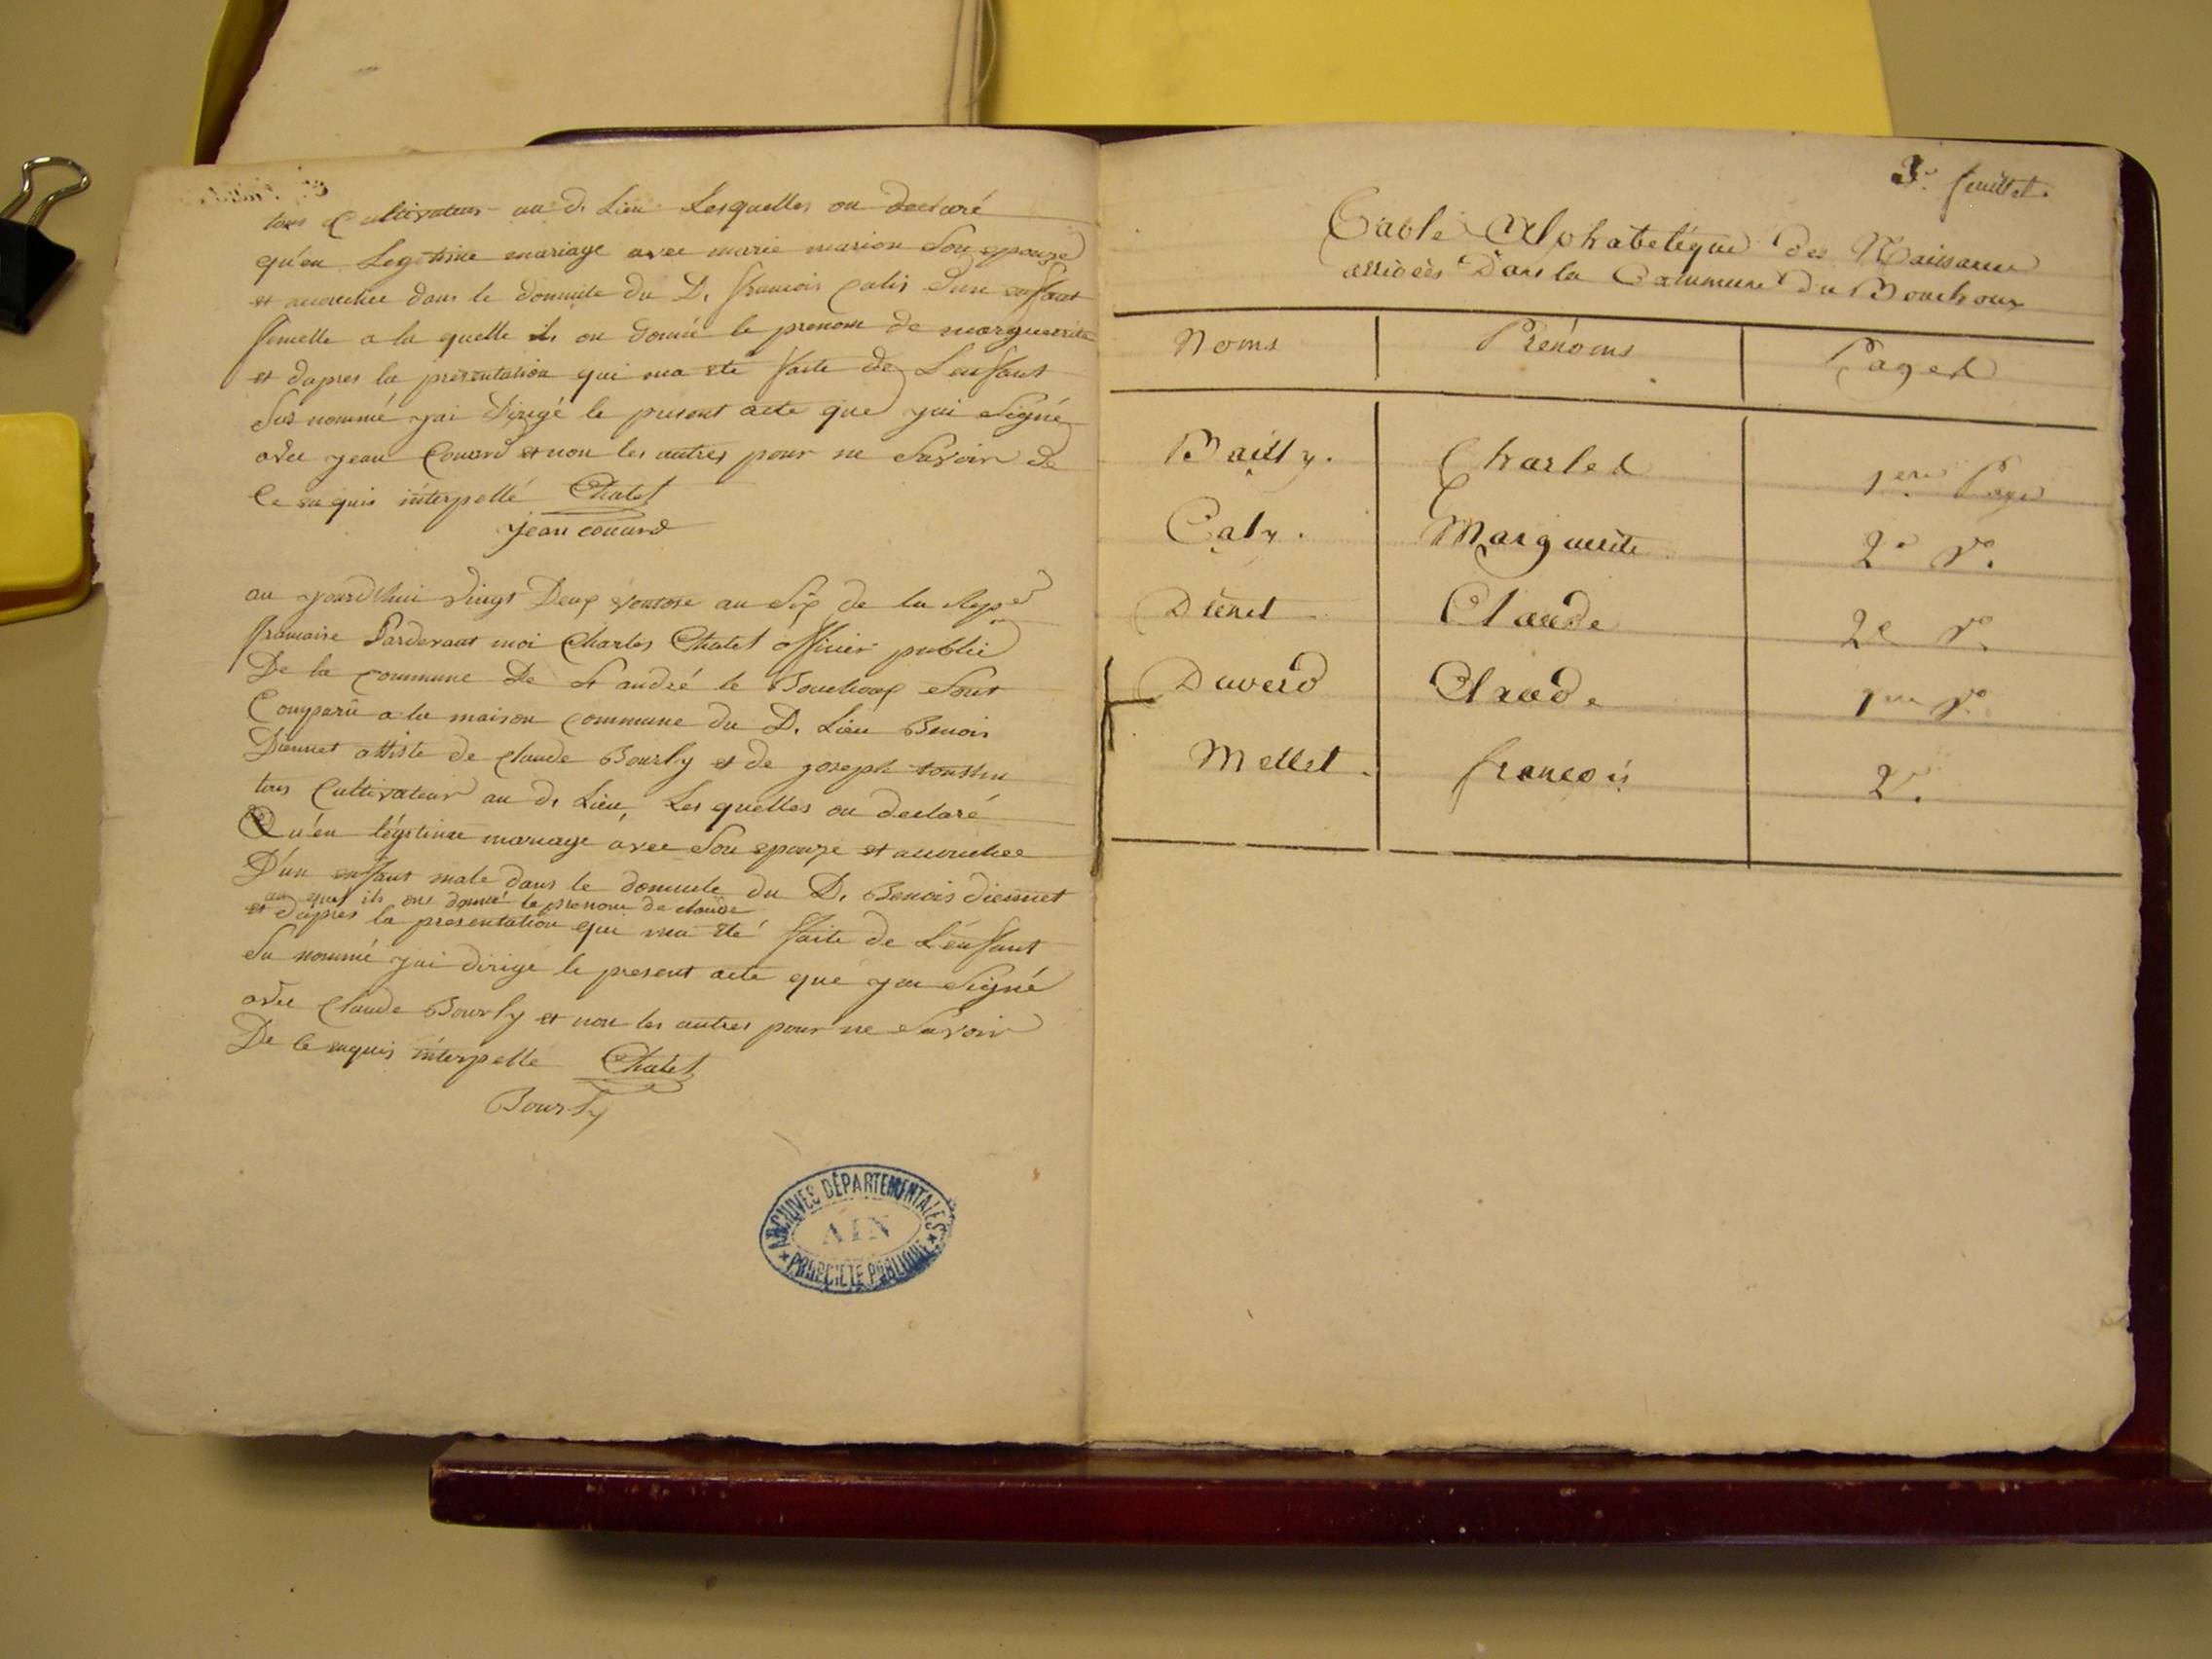 tous Cultivateur au d. Lieu Lesquelles on declaré
qu'en Legetime mariage avec marie marion Son epouze
et acouchee dans le domicile du D. francois Calis d'un enfant
femelle a la quelle ils on donné le prenom de marguerite
et dapres la présentation qui ma eté faite de L'enfant
Sus nommé jai dirigé le present acte que jai Signé
avec jean Couard et non les autres pour ne Savoir de
Ce enquis interpellé Chatel
jean couard
au jourdhui vingt Deux ventose an Six de la Rep.
francaise Pardevant moi Charles Chatel officier public
De la commune De St andré le Bouchoux Sont
Comparu a la maison commune du D. Lieu Benois
Diennet assiste de claude Bourly et de joseph
tous Cultivateur au d. Lieu, Les quelles on declaré
Qu'en légitime mariage avec Son epouze et acouchee
D'un enffant male dans le domicile du D. Benois diennet
au quel ils ont donné le prenom de claude
et dapres la presentation qui ma eté faite de L'enffant
Su nommé jai dirigé le present acte que jai Signé
avec claude Bourly et non les autres pour ne Savoir
De ce enquis interpellé Chatel
Bourly
ARCHIVES DÉPARTEMENTALES
AIN
PROPRIÉTÉ PUBLIQUE
3e. feuillet.
Table Alphabetique des Naissance
arrivées Dans la Commune du Bouchoux
Noms Prénoms Pages
Bailly. Charles 1ere Page
Caly. Marguerite 2e Vo.
Dienet Claude 2e Vo.
Duverd Claude 1ere Vo
Mellet. francois 2e.